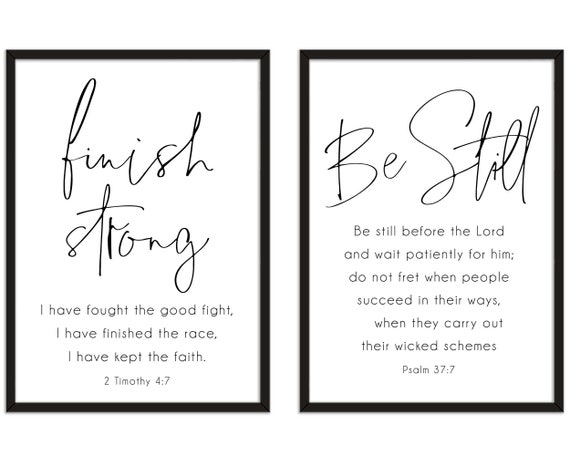 finish
strong
I have fought the good fight,
I have finished the race,
I have kept the faith.
2 Timothy 4:7
Be Still
Be still before the Lord
and wait patiently for him;
do not fret when people
succeed in their ways,
when they carry out
their wicked schemes
Psalm 37:7